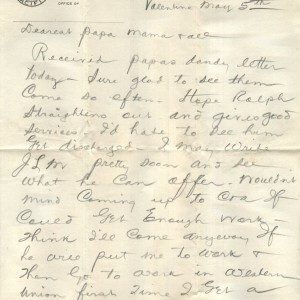 OFFICE OF
Valentine 5th
Dearest Papa Mama & all
Received Papas dandy letter
today - Sure glad to see them
Come so often. Hope Ralph
Straightens out and gives good
Services. I'd hate to see him
Get discharged - I may write
J.L.M pretty soon and see
What he Can offer. Wouldnt
mind Coming up to if
Could Get Enough Work -
Think I'll Come anyway If
he will put me to work &
Then Go to work in Western
Union first Time I Get a